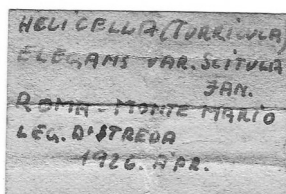 HELICELLA (TURRICULA)
ELEGANS VAR. SCITULA
JAN.
ROMA - MONTE MARIO
LEG. D'STREDA
1926. APR.